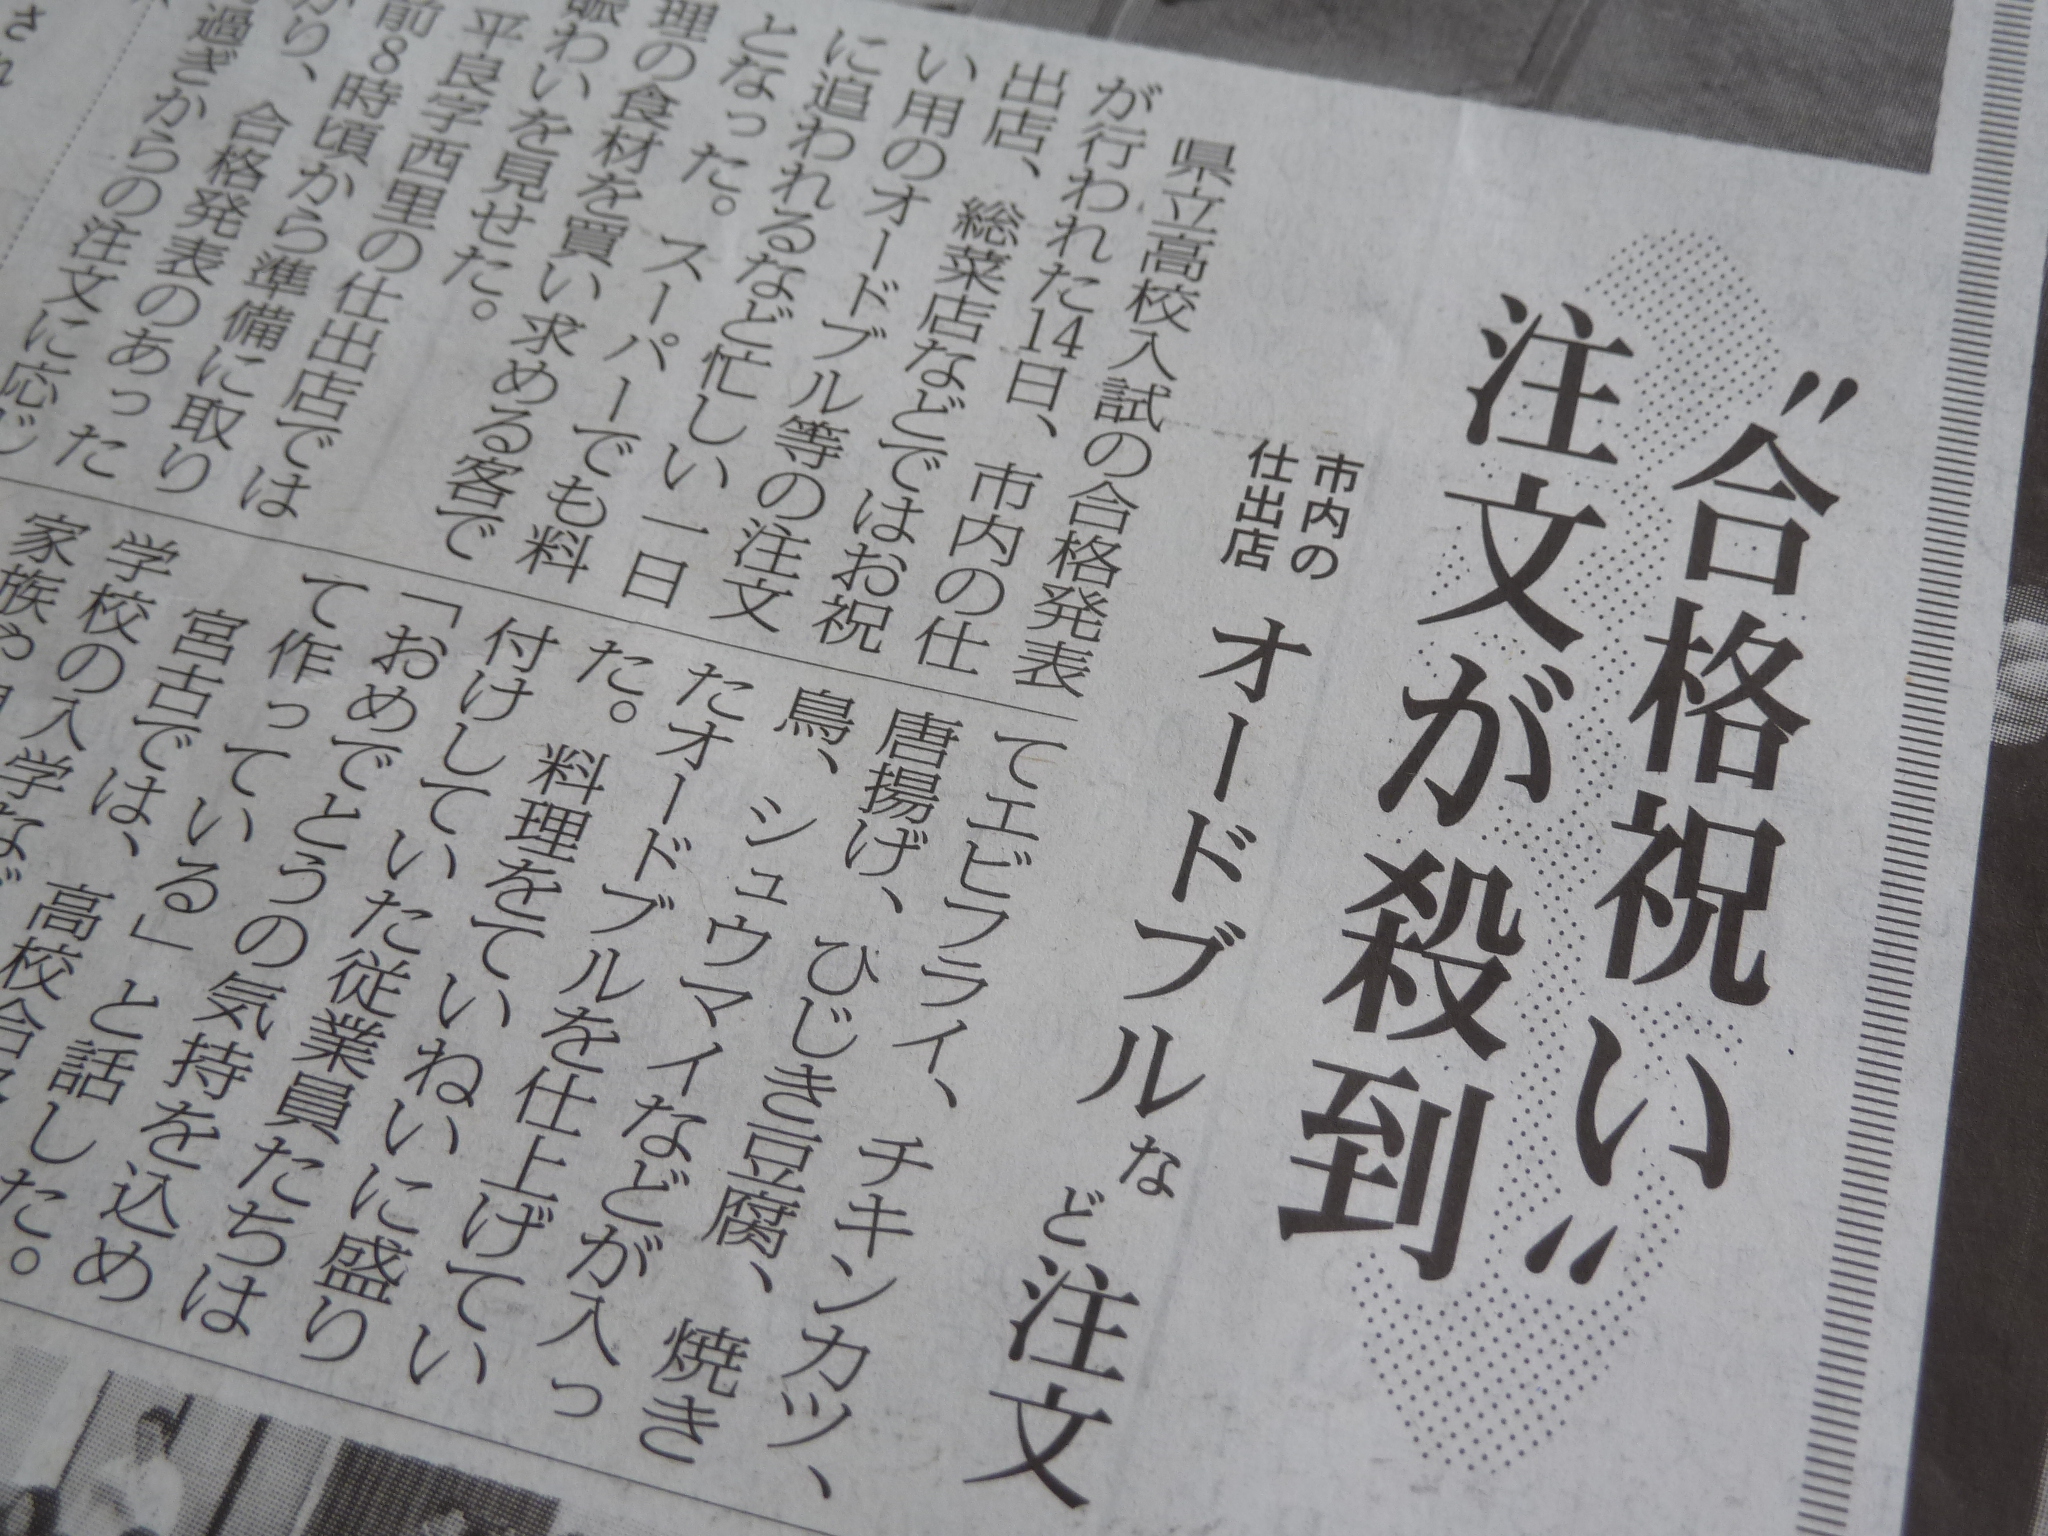 〝合格祝い〟
注文が殺到
市内の
仕出店
オードブルなど注文
県立高校入試の合格発表
が行われた14日、市内の仕
出店、総菜店などではお祝
い用のオードブル等の注文
に追われるなど忙しい一日
となった。スーパーでも料
理の食材を買い求める客で
賑わいを見せた。
平良字西里の仕出店では
前8時頃から準備に取り
かり、合格発表のあった
過ぎからの注文に応じ
てエビフライ、チキンカツ、
唐揚げ、ひじき豆腐、焼き
鳥、シュウマイなどが入っ
たオードブルを仕上げてい
た。料理をていねいに盛り
付けしていた従業員たちは
「おめでとうの気持を込め
て作っている」と話した。
宮古では、高校合
学校の入学な
家族や